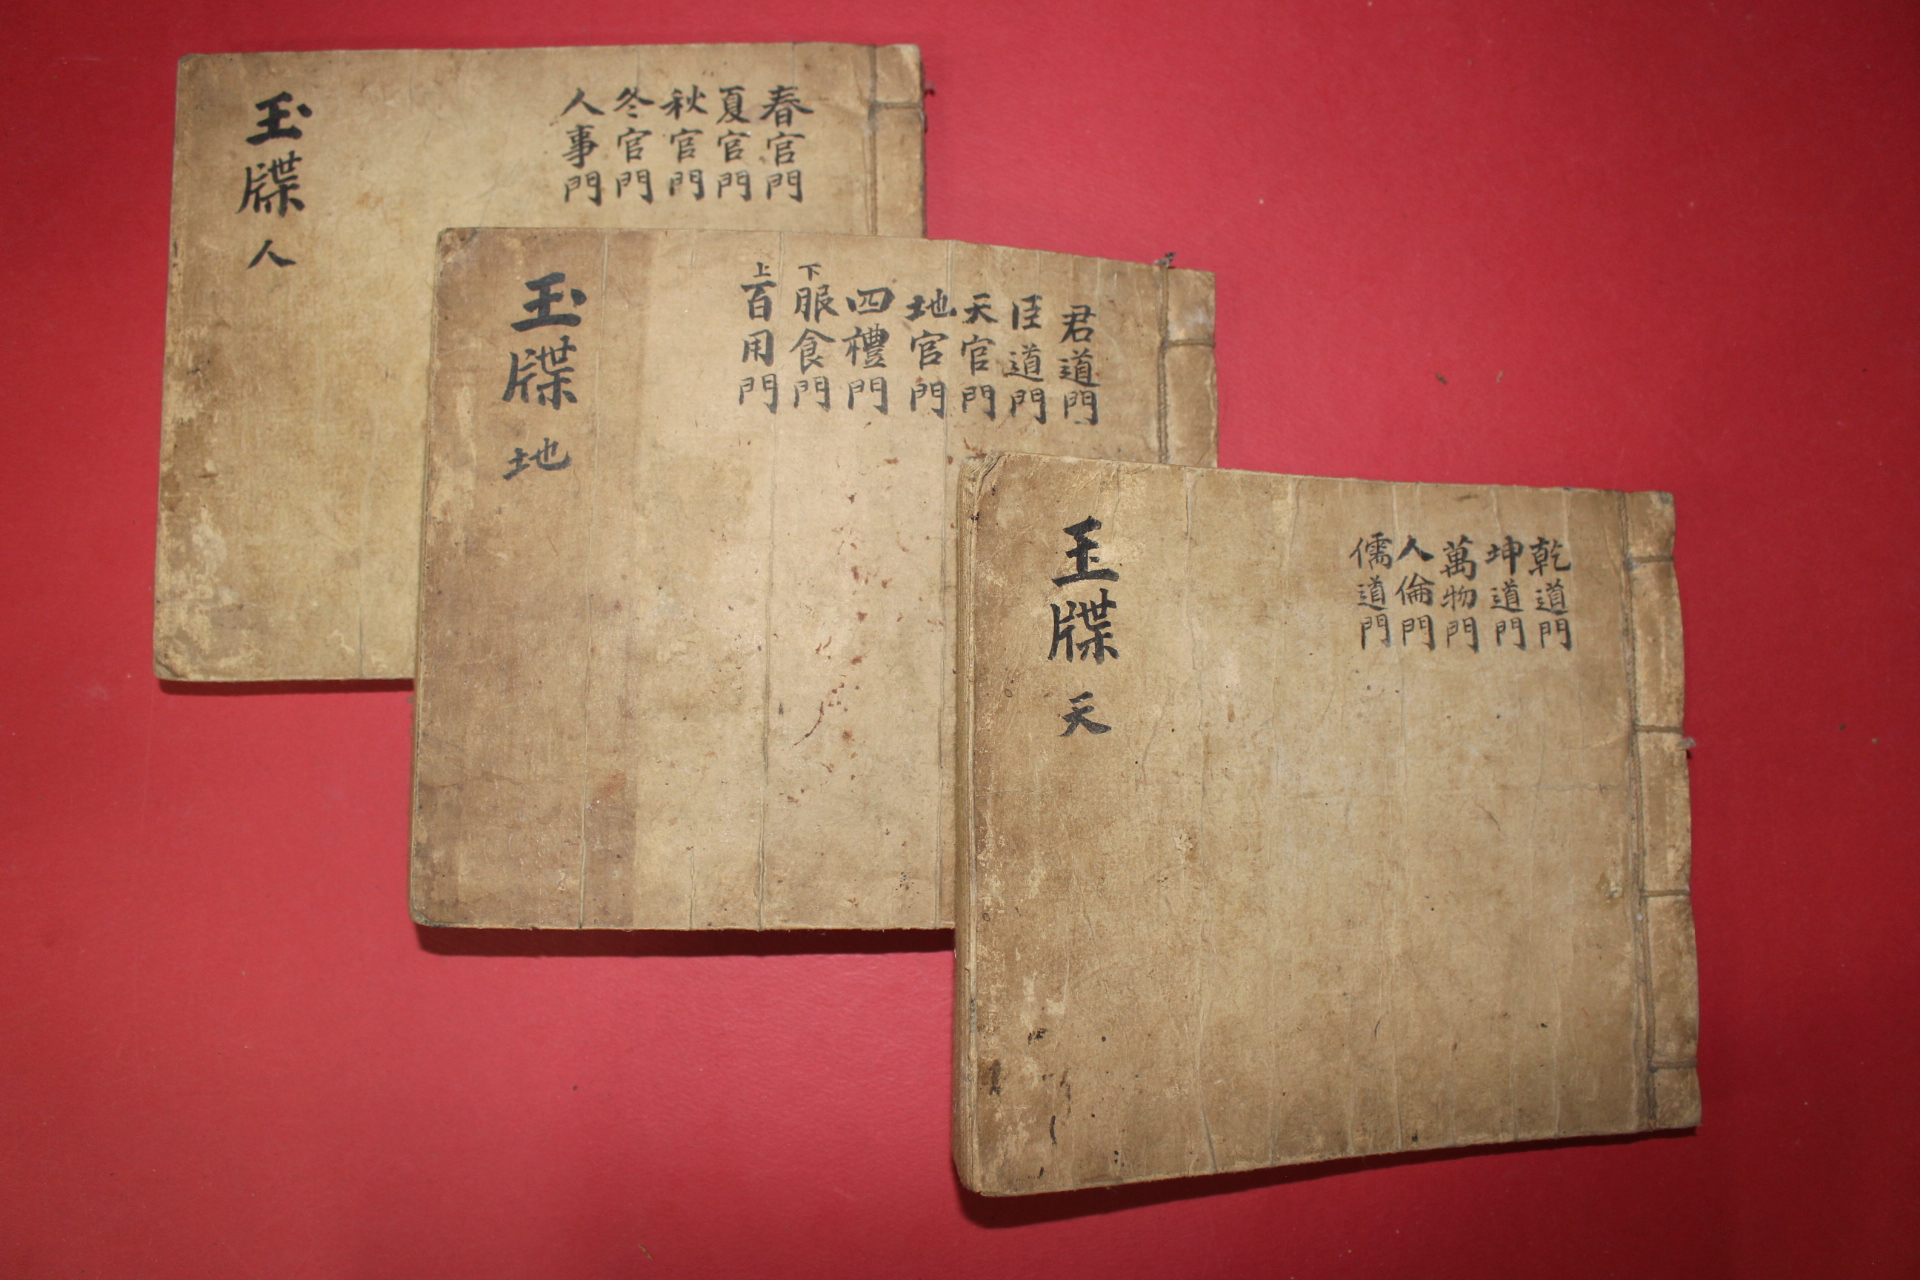 春官門
夏官門
秋官門
冬官門
人事門
玉牒 人
君道門
臣道門
天官門
地官門
四禮門
下服食門
上百用門
玉牒 地
乾道門
坤道門
萬物門
人倫門
儒道門
玉牒 天